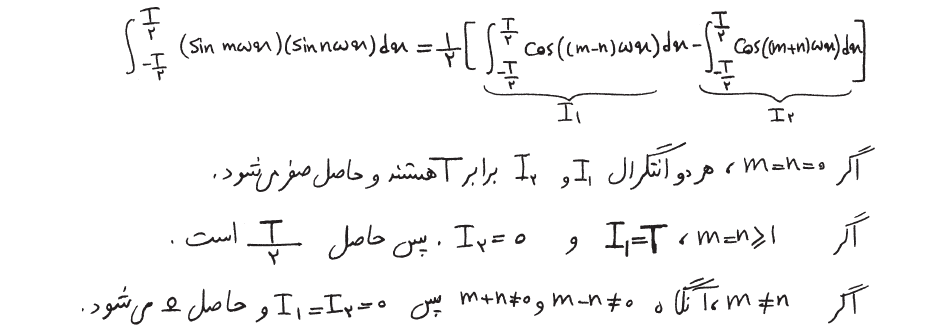 ∫_{-T/۲}^{T/۲} (Sin mωx)(sin nωx) dx = ۱/۲ [ ∫_{-T/۲}^{T/۲} Cos((m-n)ωx) dx - ∫_{-T/۲}^{T/۲} Cos((m+n)ωx) dx ]
I₁ I₂
اگر m=n=۰ ، هر دو انتگرال I₁ و I₂ برابر T هستند و حاصل صفر می‌شود.
اگر m=n≥۱ ، I₁=T و I₂=۰ . پس حاصل T/۲ است .
اگر m≠n ، آنگاه m-n≠۰ و m+n≠۰ پس I₁=I₂=۰ و حاصل ۰ می‌شود.